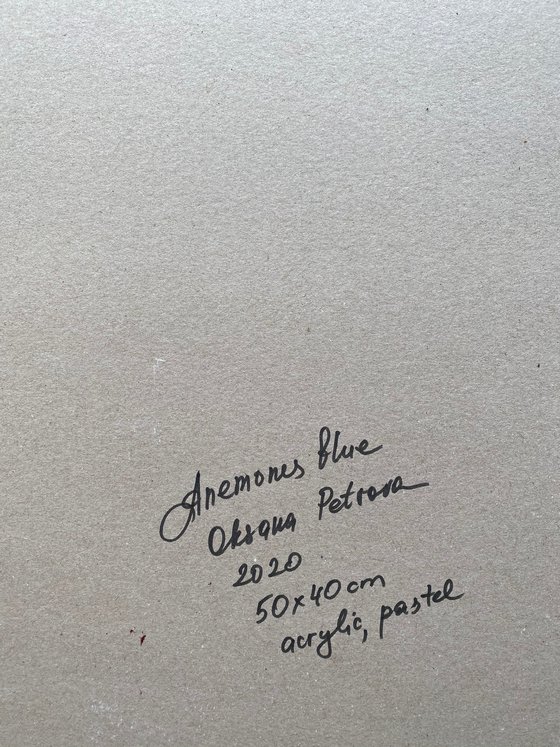 Anemones blue
Oksana Petrova
2020
50x40 cm
acrylic, pastel